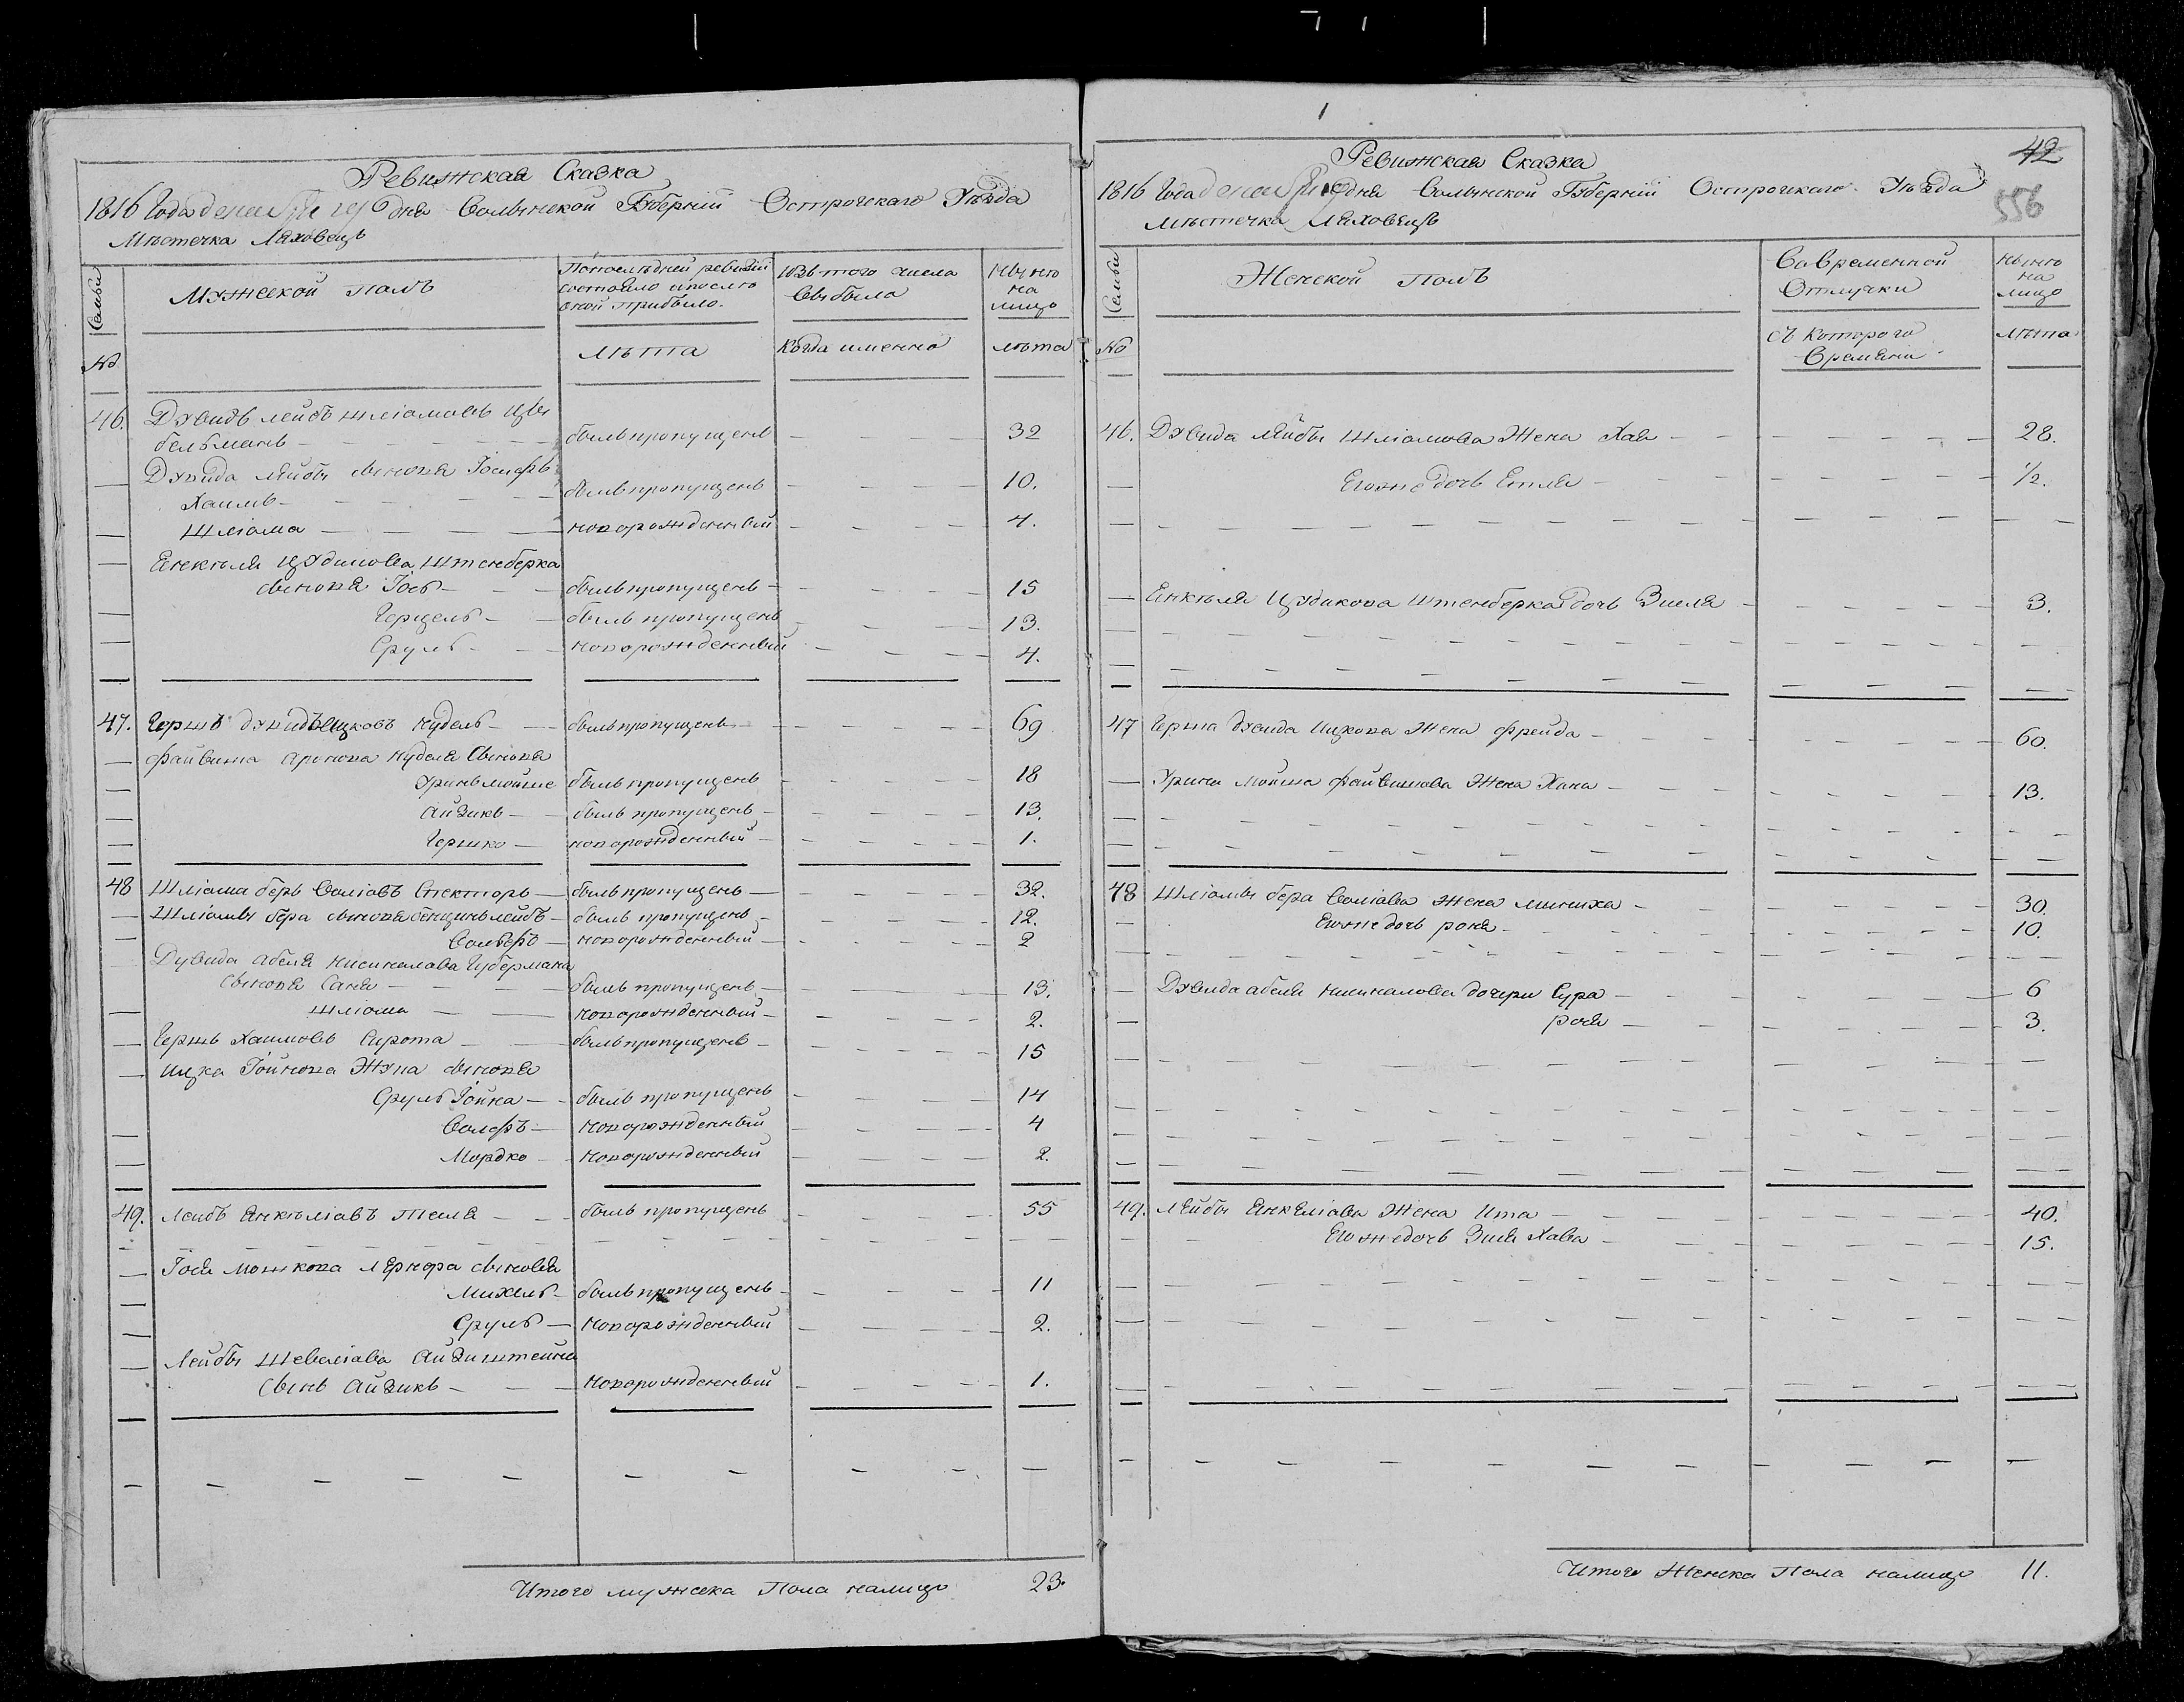 Ревижская Сказка
1816 Года дня Волынской Губерніи Острогскаго Уѣзда
Мѣстечка Ляховецъ
Семьи
Мужеской полъ
Попослѣдней ревизіи
состояло ипослѣ
оной прибыло.
Изъ того числа
Выбыло
Нынѣ
на
лицо
№
лѣта
Когда именно
лѣта
46. Дувидъ лейбъ шліомовъ Цы
бельманъ был пропущенъ 32
Дувида лейбы сыновя Іосифъ
Хаимъ былъ пропущенъ 10.
Шліома новорожденный 4.
Енкеля Цудиковa Штенберка
сыновя Іосъ былъ пропущенъ 15
Герцель былъ пропущенъ 13.
Сруль новорожденный 4.
47. Гершъ дувидъ Ицковъ Нудель былъ пропущенъ 69
Файвиша Аронова Нуделя Сыновя
Уринъ мойше былъ пропущенъ 18
Айзикъ былъ пропущенъ 13.
Гершко новорожденный 1.
48 Шліома беръ Воліовъ Спекторъ былъ пропущенъ 32.
Шліомы бера сыновя бенцинъ лейбъ былъ пропущенъ 12.
Вольфъ новорожденный 2
Дувида абеля Нисималова Губермана
Сыновя Саня былъ пропущенъ 13.
Шліома новорожденный 2.
Гершъ Хаимовъ Сирота былъ пропущенъ 15
Ицка Іойнова Жука сыновя
Сруль Іойна былъ пропущенъ 14
Волфъ новорожденный 4
Мордко новорожденный 2.
49. Лейбъ Енкеліовъ Теля былъ пропущенъ 55
Іося Мошкова Лернера сыновя
Михель былъ пропущенъ 11
Сруль новорожденный 2.
Лейбы Шевеліова Айзиштейна
Сынъ Айзикъ новорожденный 1.
Итого мужска Пола налицо 23.
42
556
Ревижская Сказка
1816 Года дня Волынской Губерніи Острогскаго Уѣзда
Мѣстечка Ляховецъ
Семьи
Женской полъ
Вовременной
Отлучки
Нынѣ
на
лицо
№
съ Которого
Времени
лѣта
46. Дувида лейбы Шліомова Жена Хая 28.
Егоже дочь Етля 1/2.
Енкеля Цудикова Штенберка дочь Зисля 3.
47 Герша дувида Ицкова Жена фрейда 60.
Урина Мойша файвишова Жена Хана 13.
48 Шліомы бера Воліова Жена миниха 30.
Егоже дочь роня 10.
Дувида абеля Нисималова дочери Сура 6
рося 3.
49. Лейбы Енкеліова Жена Ита 40.
Егоже дочь Зися Хава 15.
Итого Женска Пола налицо 11.